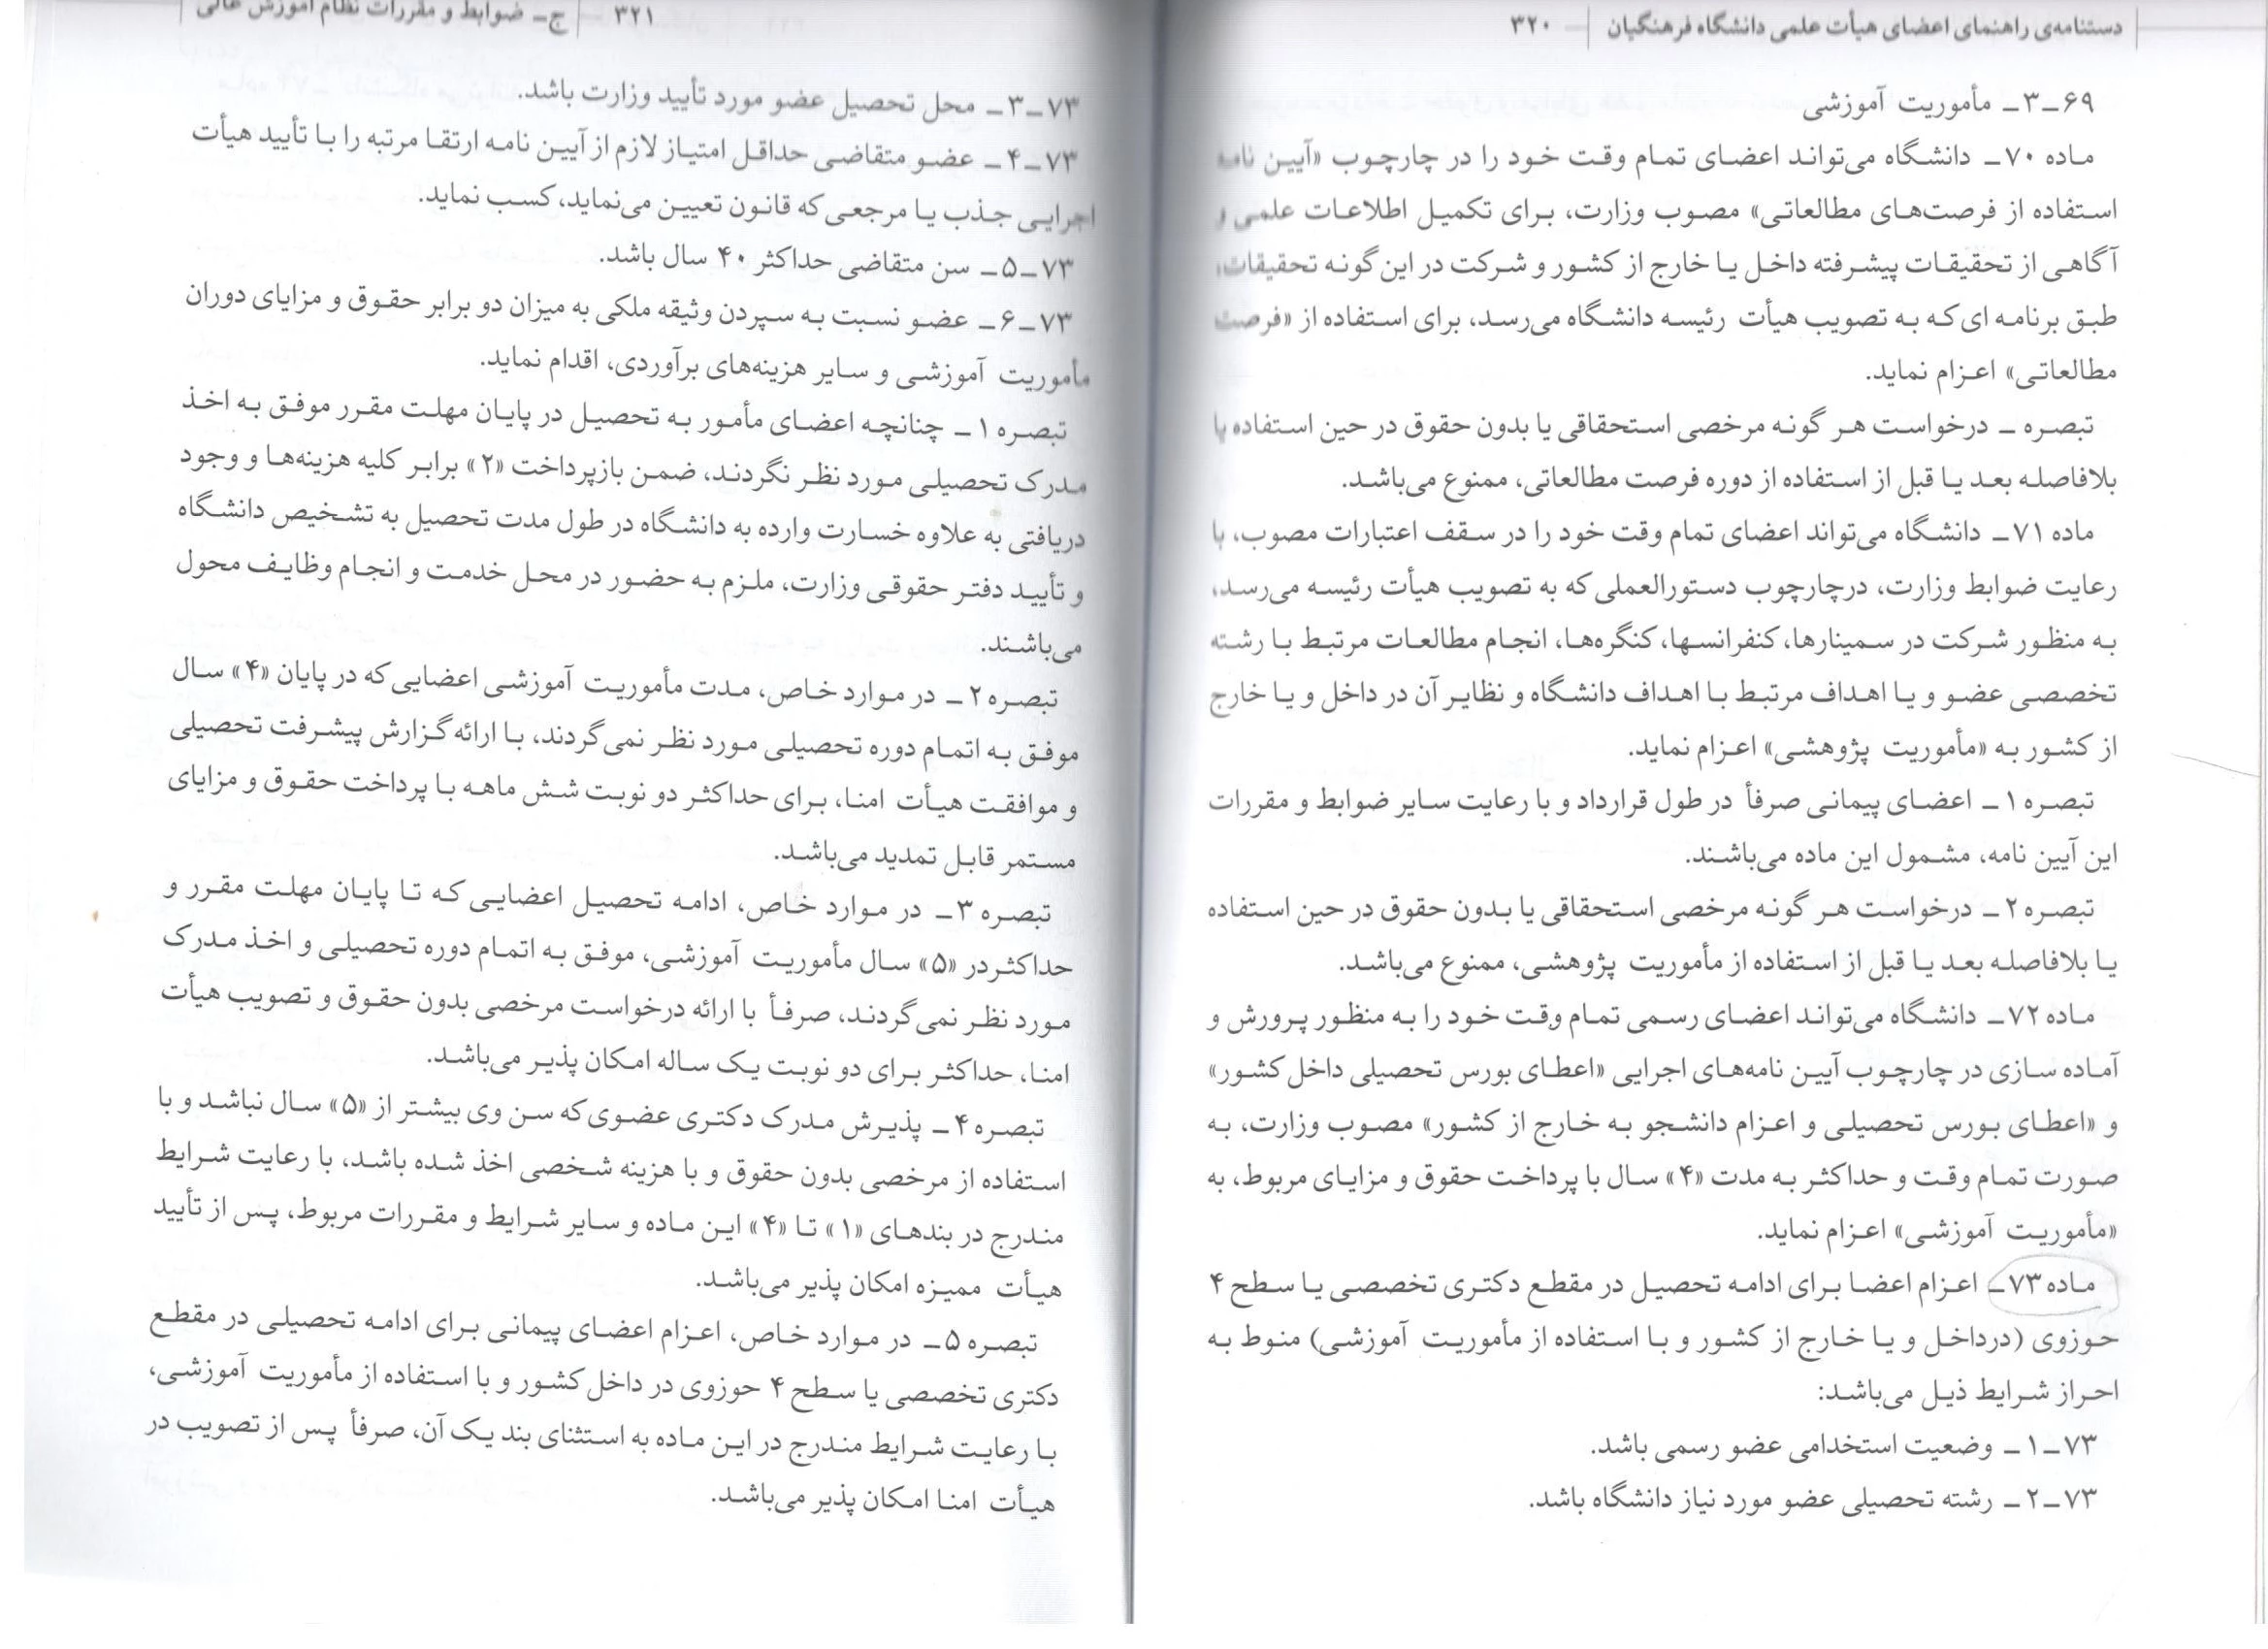 دستنامه‌ی راهنمای اعضای هیأت علمی دانشگاه فرهنگیان ۳۲۰
۶۹ـ۳ـ مأموریت آموزشی
ماده ۷۰ـ دانشگاه می‌تواند اعضای تمام وقت خود را در چارچوب «آیین نامه
استفاده از فرصت‌های مطالعاتی» مصوب وزارت، برای تکمیل اطلاعات علمی و
آگاهی از تحقیقات پیشرفته داخل یا خارج از کشور و شرکت در این گونه تحقیقات،
طبق برنامه ای که به تصویب هیأت رئیسه دانشگاه می‌رسد، برای استفاده از «فرصت
مطالعاتی» اعزام نماید.
تبصره ـ درخواست هر گونه مرخصی استحقاقی یا بدون حقوق در حین استفاده یا
بلافاصله بعد یا قبل از استفاده از دوره فرصت مطالعاتی، ممنوع می‌باشد.
ماده ۷۱ـ دانشگاه می‌تواند اعضای تمام وقت خود را در سقف اعتبارات مصوب، با
رعایت ضوابط وزارت، درچارچوب دستورالعملی که به تصویب هیأت رئیسه می‌رسد،
به منظور شرکت در سمینارها، کنفرانسها، کنگره‌ها، انجام مطالعات مرتبط با رشته
تخصصی عضو و یا اهداف مرتبط با اهداف دانشگاه و نظایر آن در داخل و یا خارج
از کشور به «مأموریت پژوهشی» اعزام نماید.
تبصره ۱ـ اعضای پیمانی صرفاً در طول قرارداد و با رعایت سایر ضوابط و مقررات
این آیین نامه، مشمول این ماده می‌باشند.
تبصره ۲ـ درخواست هر گونه مرخصی استحقاقی یا بدون حقوق در حین استفاده
یا بلافاصله بعد یا قبل از استفاده از مأموریت پژوهشی، ممنوع می‌باشد.
ماده ۷۲ـ دانشگاه می‌تواند اعضای رسمی تمام وقت خود را به منظور پرورش و
آماده سازی در چارچوب آیین نامه‌های اجرایی «اعطای بورس تحصیلی داخل کشور»
و «اعطای بورس تحصیلی و اعزام دانشجو به خارج از کشور» مصوب وزارت، به
صورت تمام وقت و حداکثر به مدت «۴» سال با پرداخت حقوق و مزایای مربوط، به
«مأموریت آموزشی» اعزام نماید.
ماده ۷۳ـ اعزام اعضا برای ادامه تحصیل در مقطع دکتری تخصصی یا سطح ۴
حوزوی (درداخل و یا خارج از کشور و با استفاده از مأموریت آموزشی) منوط به
احراز شرایط ذیل می‌باشد:
۷۳ـ۱ـ وضعیت استخدامی عضو رسمی باشد.
۷۳ـ۲ـ رشته تحصیلی عضو مورد نیاز دانشگاه باشد.
۳۲۱ ج ـ ضوابط و مقررات نظام آموزش عالی
۷۳ـ۳ـ محل تحصیل عضو مورد تأیید وزارت باشد.
۷۳ـ۴ـ عضو متقاضی حداقل امتیاز لازم از آیین نامه ارتقا مرتبه را با تأیید هیأت
اجرایی جذب یا مرجعی که قانون تعیین می‌نماید، کسب نماید.
۷۳ـ۵ـ سن متقاضی حداکثر ۴۰ سال باشد.
۷۳ـ۶ـ عضو نسبت به سپردن وثیقه ملکی به میزان دو برابر حقوق و مزایای دوران
مأموریت آموزشی و سایر هزینه‌های برآوردی، اقدام نماید.
تبصره ۱ـ چنانچه اعضای مأمور به تحصیل در پایان مهلت مقرر موفق به اخذ
مدرک تحصیلی مورد نظر نگردند، ضمن بازپرداخت «۲» برابر کلیه هزینه‌ها و وجود
دریافتی به علاوه خسارت وارده به دانشگاه در طول مدت تحصیل به تشخیص دانشگاه
و تأیید دفتر حقوقی وزارت، ملزم به حضور در محل خدمت و انجام وظایف محول
می‌باشند.
تبصره ۲ـ در موارد خاص، مدت مأموریت آموزشی اعضایی که در پایان «۴» سال
موفق به اتمام دوره تحصیلی مورد نظر نمی‌گردند، با ارائه گزارش پیشرفت تحصیلی
و موافقت هیأت امنا، برای حداکثر دو نوبت شش ماهه با پرداخت حقوق و مزایای
مستمر قابل تمدید می‌باشد.
تبصره ۳ـ در موارد خاص، ادامه تحصیل اعضایی که تا پایان مهلت مقرر و
حداکثردر «۵» سال مأموریت آموزشی، موفق به اتمام دوره تحصیلی و اخذ مدرک
مورد نظر نمی‌گردند، صرفاً با ارائه درخواست مرخصی بدون حقوق و تصویب هیأت
امنا، حداکثر برای دو نوبت یک ساله امکان پذیر می‌باشد.
تبصره ۴ـ پذیرش مدرک دکتری عضوی که سن وی بیشتر از «۵» سال نباشد و با
استفاده از مرخصی بدون حقوق و با هزینه شخصی اخذ شده باشد، با رعایت شرایط
مندرج در بندهای «۱» تا «۴» این ماده و سایر شرایط و مقررات مربوط، پس از تأیید
هیأت ممیزه امکان پذیر می‌باشد.
تبصره ۵ـ در موارد خاص، اعزام اعضای پیمانی برای ادامه تحصیلی در مقطع
دکتری تخصصی یا سطح ۴ حوزوی در داخل کشور و با استفاده از مأموریت آموزشی،
با رعایت شرایط مندرج در این ماده به استثنای بند یک آن، صرفاً پس از تصویب در
هیأت امنا امکان پذیر می‌باشد.